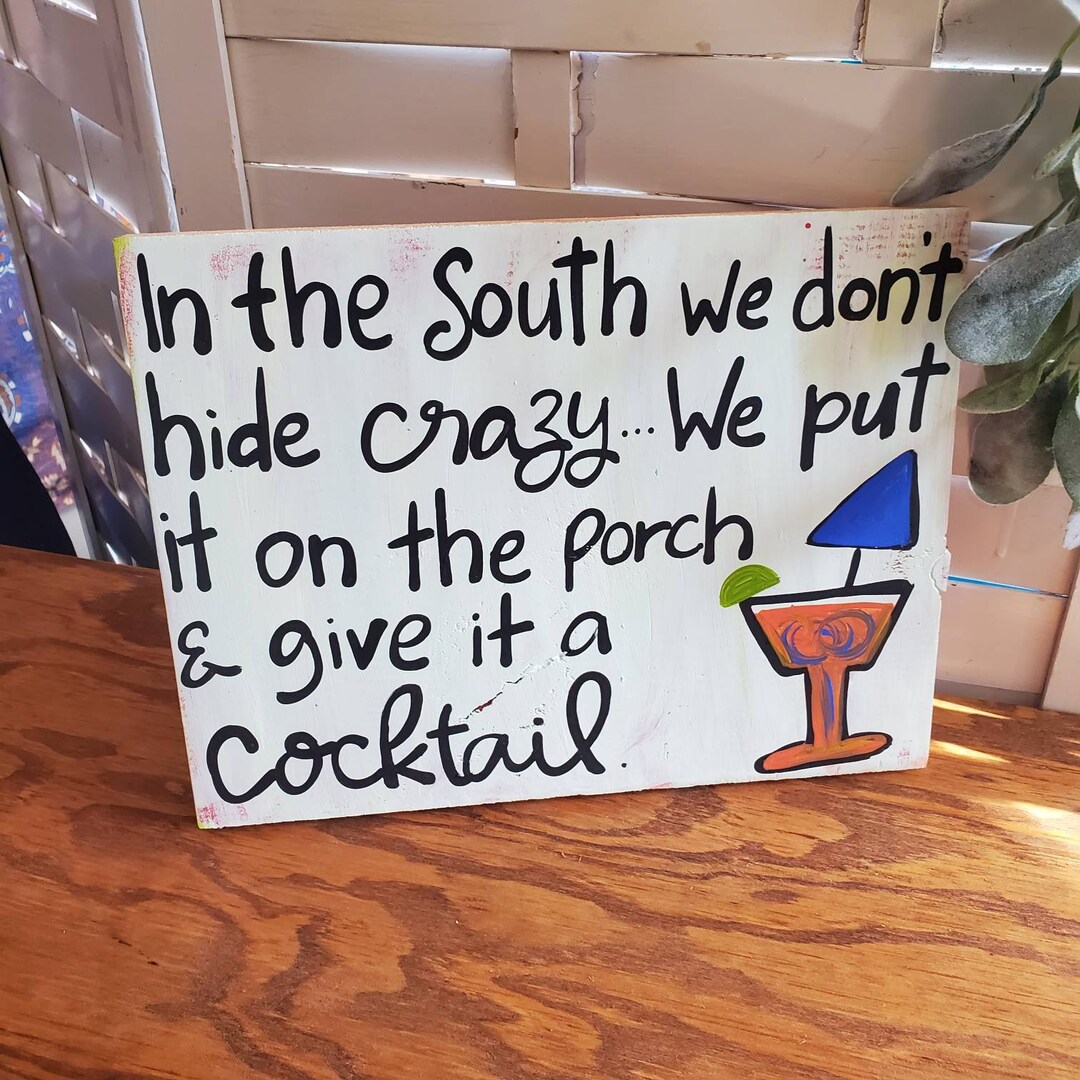 In the South we don't
hide crazy... We put
it on the porch
& give it a
Cocktail.